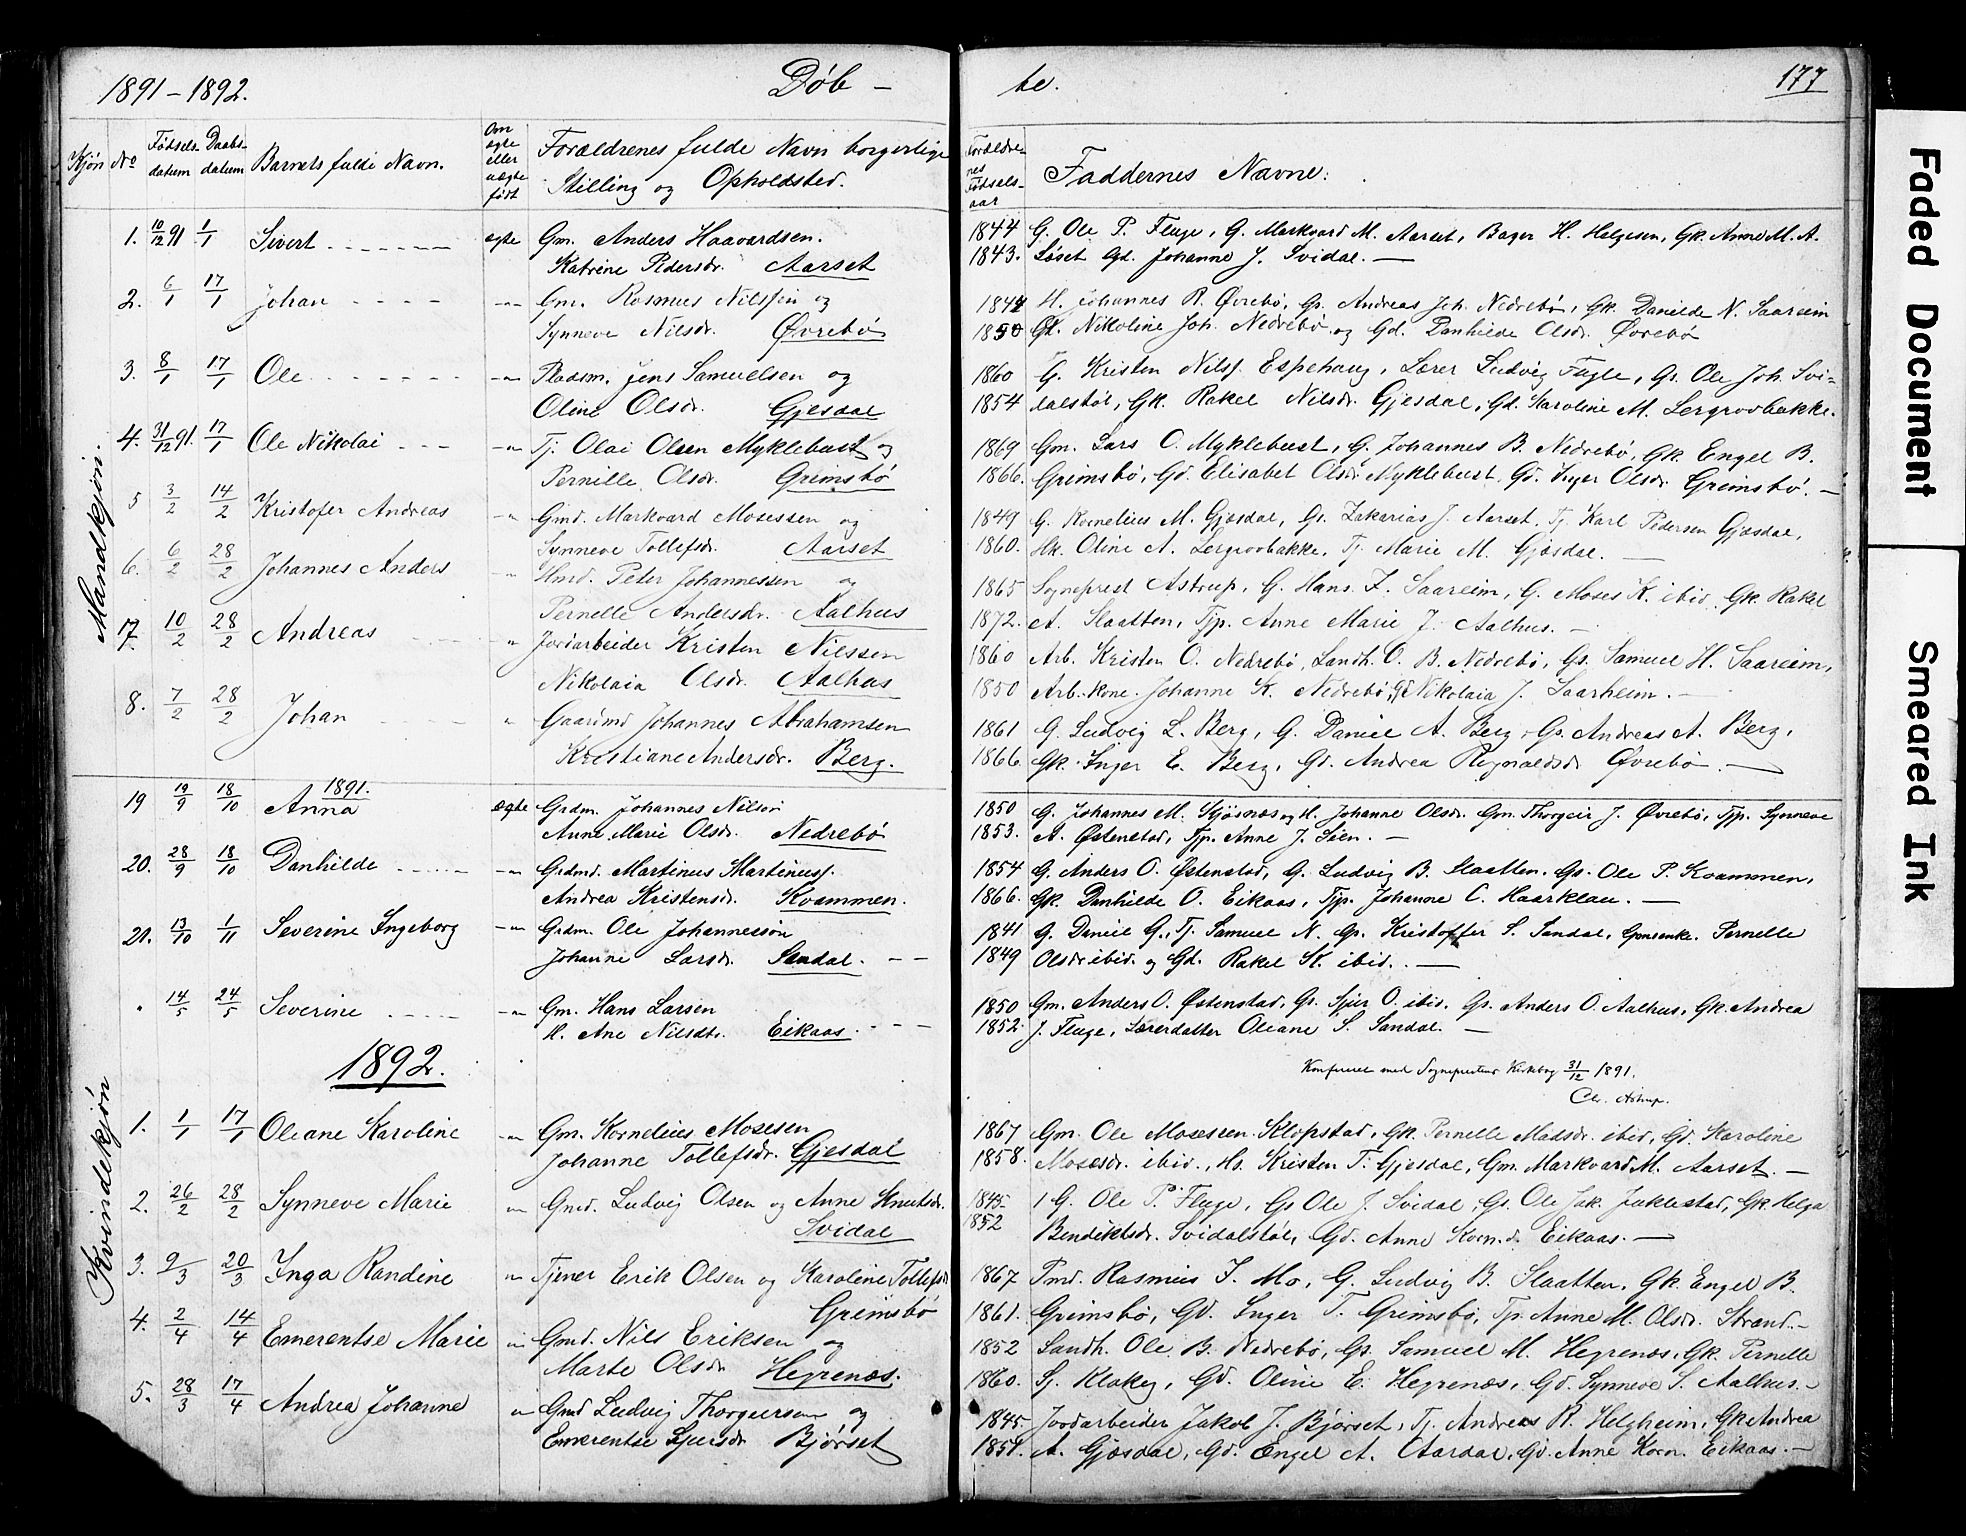 1891-1892.
Døb -
te.
177
Kjøn
No
Fødsels-
datum
Daabs-
datum
Barnets fulde Navn.
Om
ægte
eller
uægte
født
Forældrenes fulde Navn borgerlige
Stilling og Opholdsted.
Forældre-
nes
Fødsels-
aar
Faddernes Navne:
Mandkjøn.
1. 10/12 91 1/1 Sivert ægte Gm. Anders Haavardsen. 1844 G. Ole P. Fluge, G. Markvard M. Aarset, Bager H. Helgesen, Gk. Anne M. A.
Katrine Pedersdr. Aarset 1843. Løset Gd. Johanne J. Svidal. —
2. 6/1 17/1 Johan -"- Gm. Rasmus Nilssen og 1844 H. Johannes R. Øvrebø, Gs. Andreas Joh. Nedrebø, Gk. Danilde N. Saareim
Synneve Nilsdr. Øvrebø 1850 Gd. Nikoline Joh. Nedrebø og Gd. Danhilde Olsdr. Øvrebø
3. 8/1 17/1 Ole -"- Pladsm. Jens Samuelsen og 1860 G. Kristen Nilss. Espehaug, Lærer Ludvig Fugle, Gs. Ole Joh. Svi-
Oline Olsdr. Gjesdal 1854 dalstøl, Gk. Rakel Nilsdr. Gjesdal, Gd. Karoline M. Lergrovbakke.
4. 31/12 91. 17/1 Ole Nikolai -"- Tj. Olai Olsen Myklebust og 1869 Gm. Lars O. Myklebust, G. Johannes B. Nedrebø, Gk. Engel B.
Pernille Olsdr. Grimsbø 1866. Grimsbø, Gd. Elisabet Olsdr. Myklebust, Gd. Inger Olsdr. Grimsbø. —
5 3/2 14/2 Kristofer Andreas -"- Gmd. Markvard Mosessen og 1849 G. Kornelius M. Gjesdal, Gs. Zakarias J. Aarset, Tj. Karl Pedersen Gjesdal,
Synneve Tollefsdr. Aarset 1860. Hk. Oline A. Lergrovbakke, Tj. Marie M. Gjesdal. —
6. 6/2 28/2 Johannes Anders " Hmd. Peter Johannessen og 1865 Sogneprest Astrup, G. Hans J. Saareim, G. Moses K. ibid, Gk. Rakel
Pernelle Andersdr. Aalhus 1872. A. Slaatten, Tjp. Anne Marie J. Aalhus. —
7. 10/2 28/2 Andreas " Jordarbeider Kristen Nilssen 1860 Arb. Kristen O. Nedrebø, Landh. O. B. Nedrebø, Gs. Samuel H. Saareim,
Nikolaia Olsdr. Aalhus 1850 Arb. kone Johanne K. Nedrebø, Gd. Nikolaia J. Saarheim. —
8. 7/2 28/2 Johan " Gaardmd Johannes Abrahamsen 1861 G. Ludvig L. Berg, G. Daniel A. Berg, Gs. Andreas A. Berg,
Kristiane Andersdr. Berg. 1866. Gk. Inger E. Berg, Gd. Andrea Regnaldsdr. Øvrebø. —
1891.
19 19/9 18/10 Anna ægte Grdm. Johannes Nilsen 1850 G. Johannes M. Kjøsnes og H. Johanne Olsdr. Gm. Thorgeir J. Øvrebø, Tjp. Synneve
Anne Marie Olsdr. Nedrebø 1853. A. Østenstad, Tjp. Anne J. Sien. —
20. 28/9 18/10 Danhilde -"- Grdmd. Martinus Martinuss. 1854 G. Anders O. Østenstad, G. Ludvig B. Slaatten, Gs. Ole P. Kvammen,
Andrea Kristensdr. Kvammen. 1866. Gk. Danhilde O. Eikaas, Tjp. Johanne C. Haarklau. —
21. 13/10 1/11 Severine Ingeborg -"- Grdm. Ole Johannessøn 1841 G. Daniel G., Tj. Samuel N. Gs. Kristoffer S. Sandal, Gm.enke. Pernelle
Johanne Larsdr. Sandal. 1849 Olsdr ibid. og Gd. Rakel K. ibid. —
" 14/5 24/5 Severine -"- Gm. Hans Larsen 1850 Gm. Anders O. Østenstad, Gs. Sjur O. ibid, Gs. Anders O. Aalhus, Gk. Andrea
H. Ane Nilsdtr. Eikaas. 1852. J. Fluge, Lærerdatter Oleane S. Sandal. —
1892.
Konfereret med Sogneprestens Kirkebog 31/12 1891.
Chr. Astrup.
Kvindekjøn
1. 1/1 17/1 Oleane Karoline -"- Gm. Kornelius Mosesen 1867 Gm. Ole Mosessen Klopstad, Gk. Pernelle Madsdr. ibid, Gd. Karoline
Johanne Tollefsdr. Gjesdal 1858. Mosesdr. ibid., Hs. Kristen T. Gjesdal, Gm. Markvard M. Aarset. —
2. 26/2 28/2 Synneve Marie -"- Gmd. Ludvig Olsen og Anne Knutsdr. 1845 G. Ole P. Fluge, Gs Ole J. Svidal, Gs. Ole Jak. Juklestad, Gk. Helga
Svidal 1852 Bendiktsdr. Svidalstøl, Gd. Anne Korn.d. Eikaas. —
3. 9/3 20/3 Inga Randine " Tjener Erik Olsen og Karoline Tollefsd 1867 Pmd. Rasmus J. Mo, G. Ludvig B. Slaatten, Gk. Engel B.
Grimsbø 1861. Grimsbø, Gd. Inger T. Grimsbø, Tp. Anne M. Olsdr. Strand. —
4. 2/4 14/4 Emerentse Marie " Gmd. Nils Eriksen og 1852 Landh. Ole B. Nedrebø, Gs. Samuel M. Hegrenæs, Gk. Pernelle
Marte Olsdr Hegrenæs. 1860. Sj. Klakeg, Gd. Oline E. Hegrenæs, Gd. Synneve S. Aalhus. —
5. 28/3 17/4 Andrea Johanne " Gmd Ludvig Thorgersen og 1845 Jordarbeider Jakob J. Bjørset, Tj. Andreas R. Helgheim, Gk Andrea
Emerentse Sjursdr Bjørset 1851. A. Gjesdal, Gd. Engel A. Aardal, Gd. Anne Korn. Eikaas. —
Faded Document
Smeared Ink